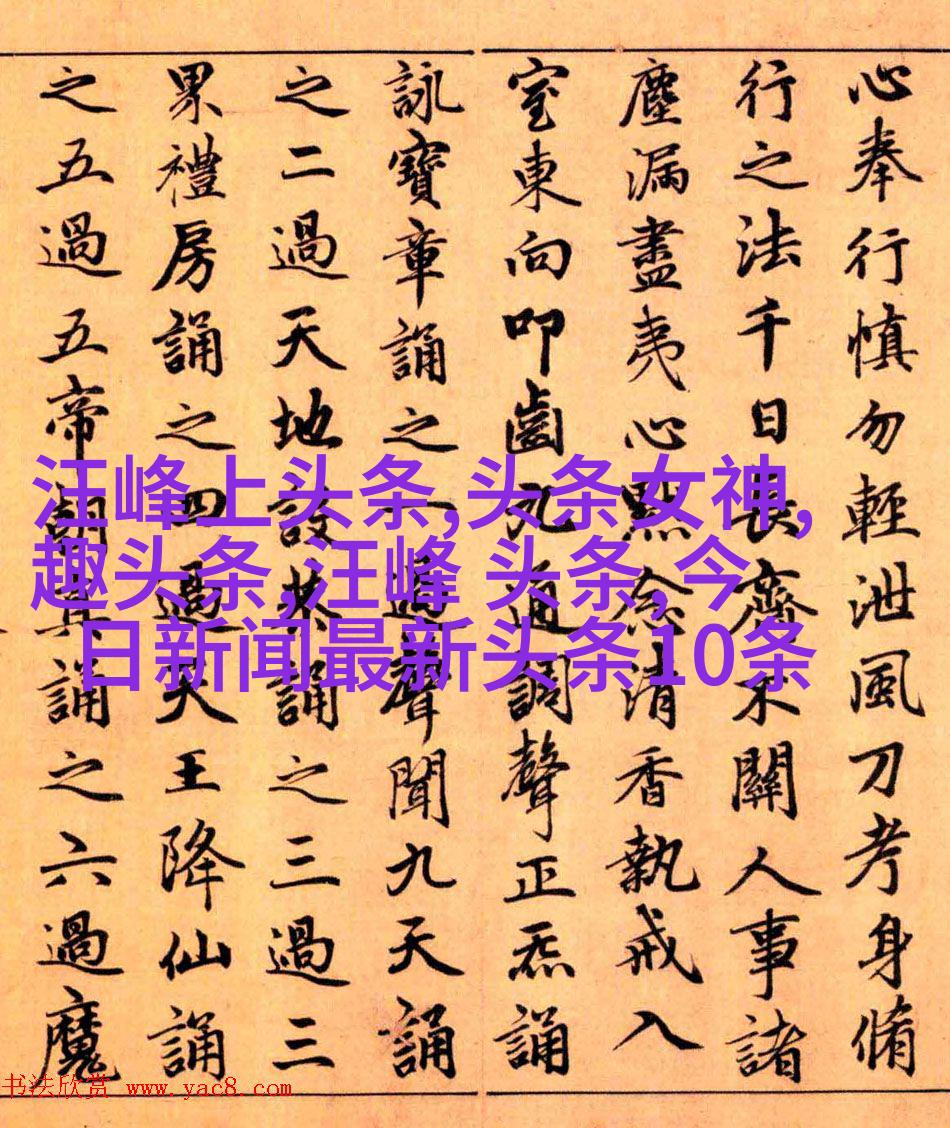 心奉行慎勿輕泄風刀考身脩
行之法千日長齋不關人事諸
塵漏盡夷心默念清香執戒入
室東向叩齒九通調聲正炁誦
詠寶章誦之一過聲聞九天誦
之二過天地設恭誦之三過三
累禮房誦之四過天王降仙誦
之五過五帝朝真誦之六過魔
汪峰上头条,头条女神,
趣头条,汪峰 头条,今
日新闻最新头条10条
书法欣赏 www.yac8.com